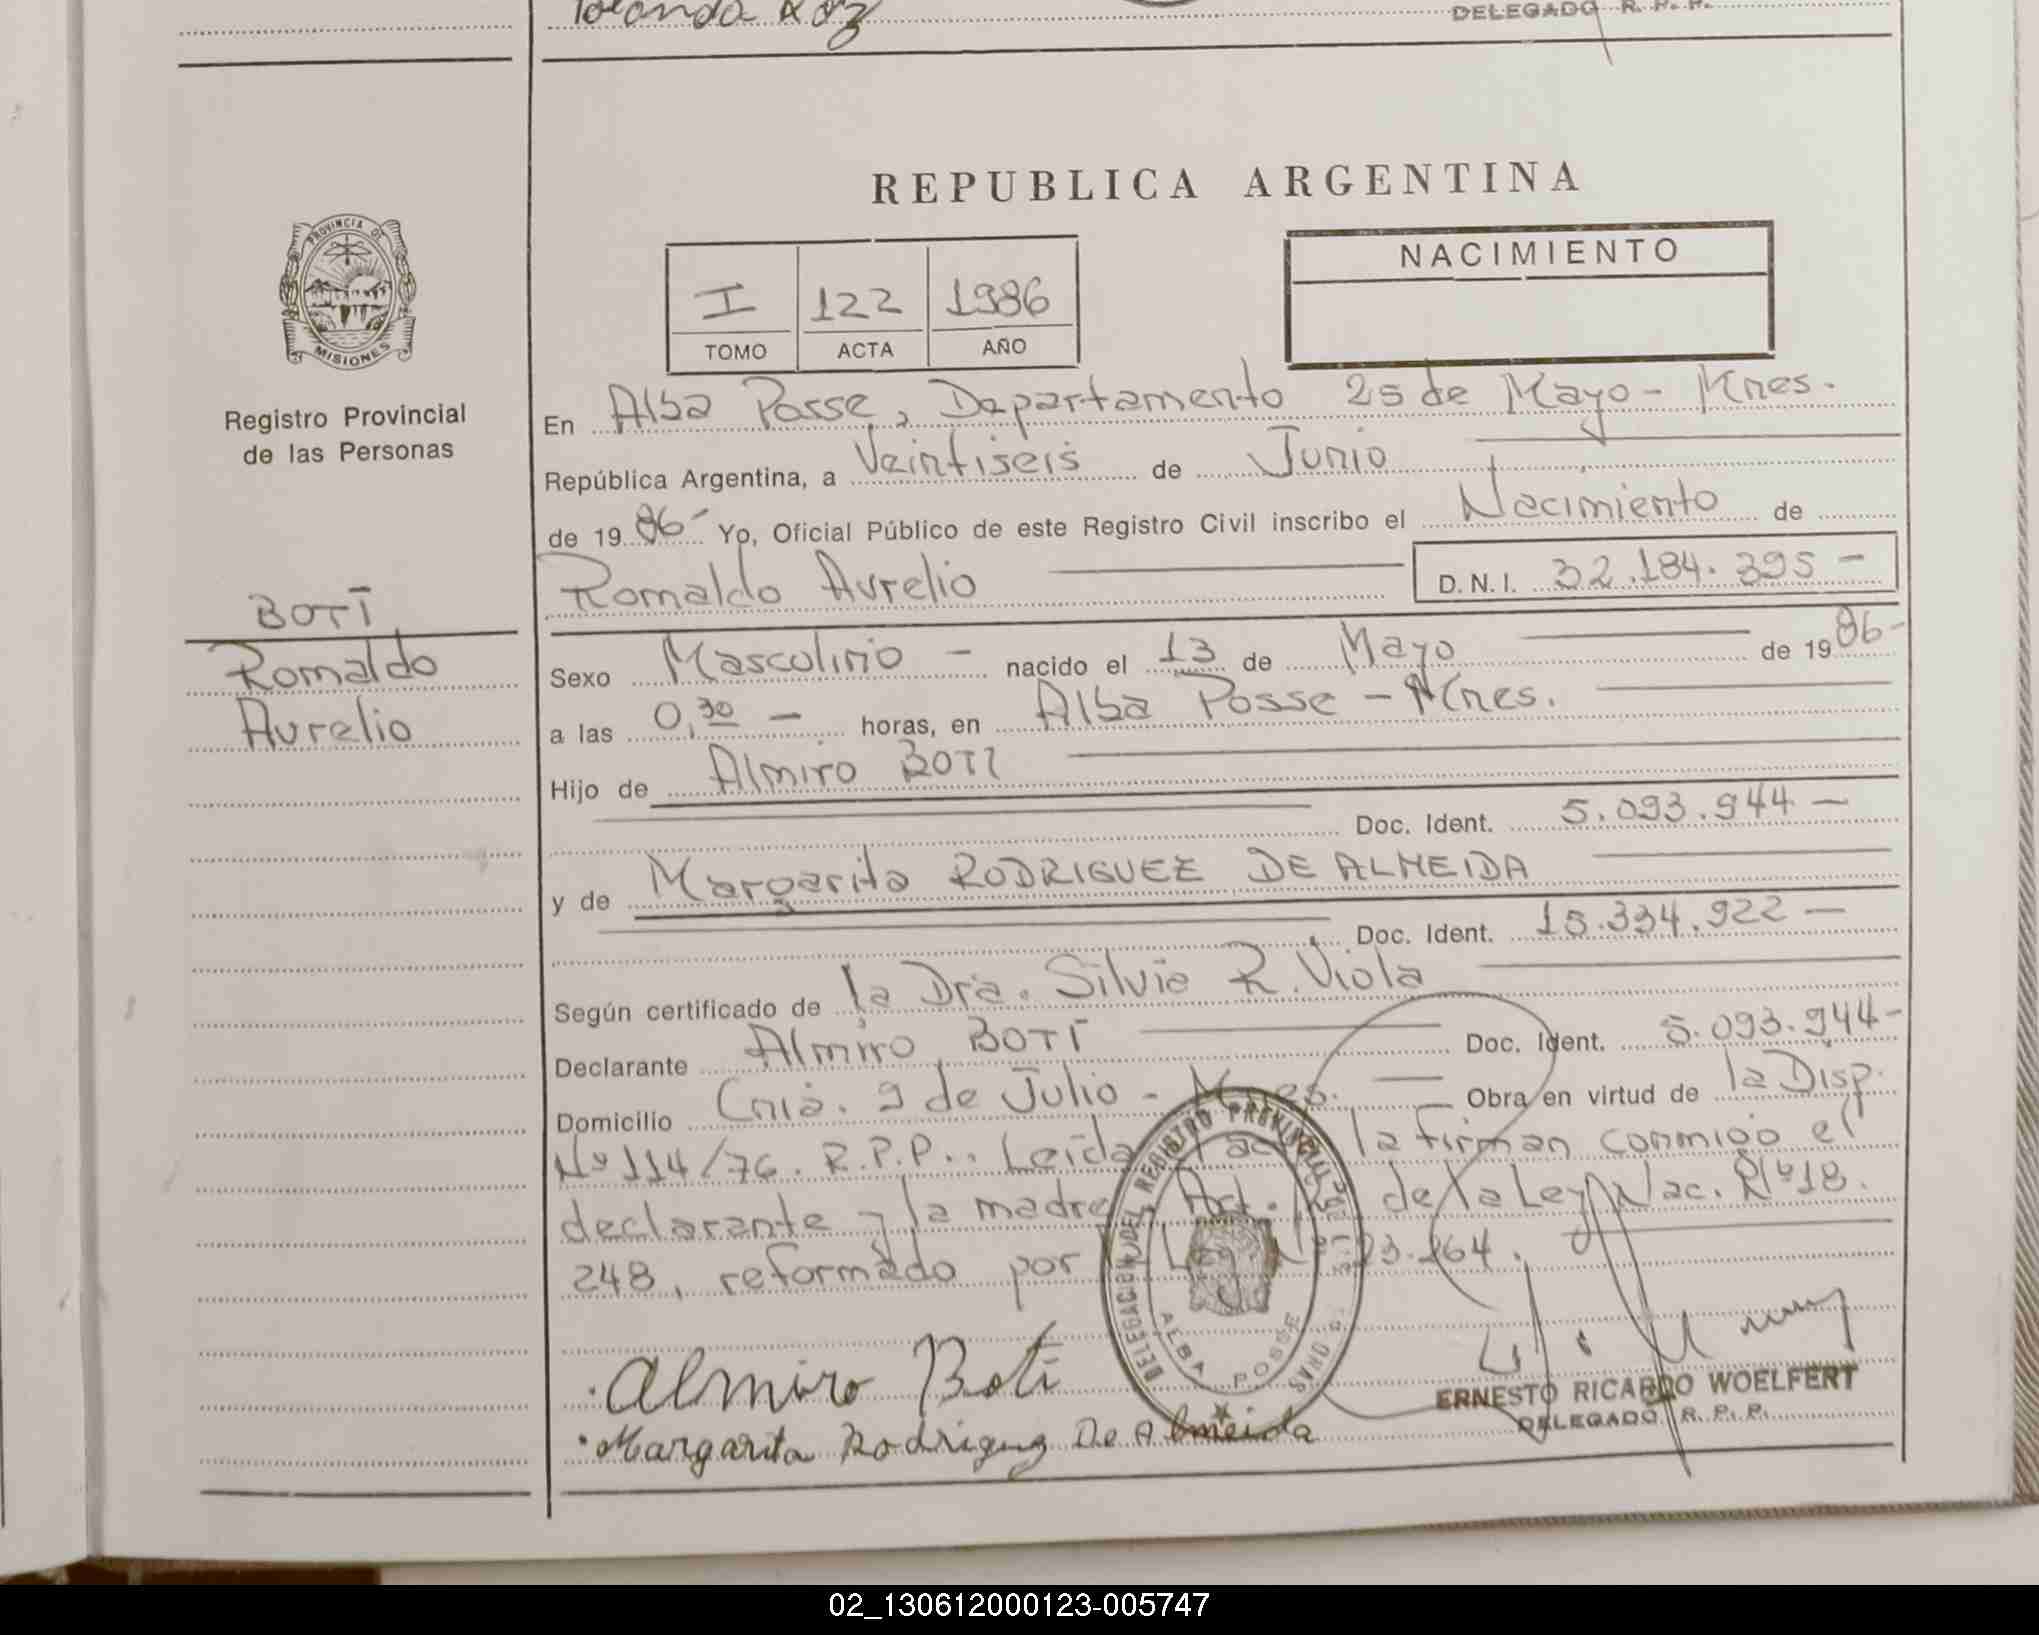 Yolanda
DELEGADO R. P. P.
REPUBLICA ARGENTINA
PROVINCIA DE
MISIONES
Registro Provincial
de las Personas
I 122 1986
TOMO ACTA AÑO
NACIMIENTO
En Alba Posse, Departamento 25 de Mayo - Mnes.
República Argentina, a Veintiseis de Junio
de 19 86- Yo, Oficial Público de este Registro Civil inscribo el Nacimiento de
Romaldo Aurelio D. N. I. 32.184.395 -
BOTI
Romaldo
Aurelio
Sexo Masculino - nacido el 13 de Mayo de 19 86-
a las 0,30 - horas, en Alba Posse - Mnes.
Hijo de Almiro BOTI
Doc. Ident. 5.093.944 -
y de Margarita RODRIGUEZ DE ALMEIDA
Doc. Ident. 15.334.922 -
Según certificado de la Dra. Silvia R. Viola
Declarante Almiro BOTI Doc. Ident. 5.093.944-
Domicilio Cnia. 9 de Julio - Mnes. Obra en virtud de la Disp.
Nº 114/76. R.P.P.. Leída el acta la firman conmigo el
declarante y la madre. Art. de la Ley Nac. Nº 18.
248, reformado por Ley Nº 23.264.
DELEGACION DEL REGISTRO PROVINCIAL DE
ALBA POSSE
Almiro Boti
Margarita Rodriguez De Almeida
ERNESTO RICARDO WOELFERT
DELEGADO R. P. P.
02_130612000123-005747